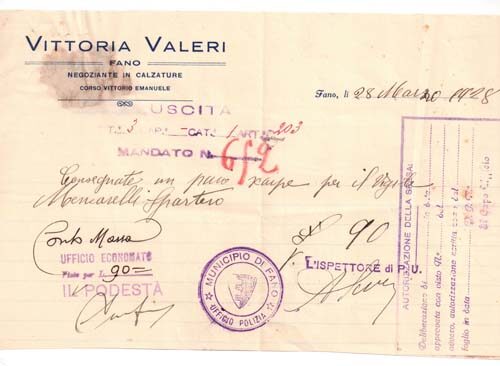 VITTORIA VALERI
FANO
NEGOZIANTE IN CALZATURE
CORSO VITTORIO EMANUELE
Fano, li 28 Marzo 1928
USCITA
TIT. 3 CAP. - CAT. 1 ART. 203
MANDATO N. 652
Consegnato un paro scarpe per il vigile
Moncarelli Spartero
£ 90
UFFICIO ECONOMATO
Visto per L. 90=
IL PODESTÀ
MUNICIPIO DI FANO
UFFICIO POLIZIA
L'ISPETTORE di P.U.
AUTORIZZAZIONE DELLA SPESA:
Deliberazione di
in data
approvata con visto N.
del
ovvero, autorizzazione scritta
del
foglio in data
Il Capo Ufficio